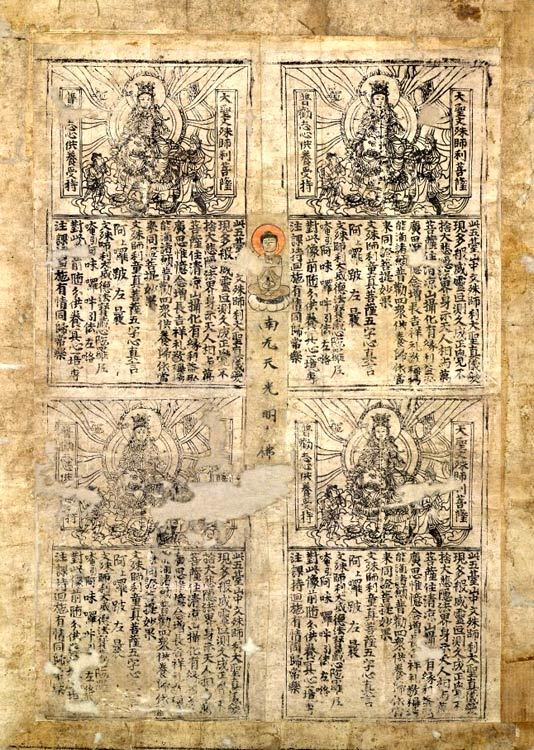 大聖文殊師利菩薩
普勸志心供養受持
此五臺山中文殊師利大聖真儀變
現多般威靈叵測久成正覺不
捨大悲隱法界身示天人相與萬
菩薩住清涼山攝化有緣利益弘
廣思惟憶念增長吉祥禮敬稱揚
能滿諸願普勸四眾供養歸依當
來同證菩提妙果
文殊師利童真菩薩五字心真言
阿上囉跛左曩
文殊師利大威德法寶藏心陀羅尼
唵引阿味囉吽引佉左
對此像前隨分供養冥心專
注課持迴施有情同歸常樂
大聖文殊師利菩薩
普 志心供養受持
此五臺山中文殊師利大聖真儀變
現多般威靈叵測久成正覺不
捨大悲隱法界身示天人相與萬
菩薩住清涼山攝化有緣利益弘
廣思惟憶念增長吉祥禮敬稱揚
能滿諸願普勸四眾供養歸依當
來同證菩提妙果
文殊師利童真菩薩五字心真言
阿上囉跛左曩
文殊師利大威德法寶藏心陀羅尼
唵引阿味囉吽引佉左
對此 前隨分供養冥心專
注課持迴施有情同歸常樂
南无天光明佛
大聖文殊師利菩薩
普勸志心供養受持
此五臺山中文殊師利大聖真儀變
現多般威靈叵測久成正覺不
捨大悲隱法界身示天人相與萬
菩薩住清涼山攝化有緣利益弘
廣思惟憶念增長吉祥禮敬稱揚
能滿諸願普勸四眾供養歸依當
來同證菩提妙果
文殊師利童真菩薩五字心真言
阿上囉跛左曩
文殊師利大威德法寶藏心陀羅尼
唵引阿味囉吽引佉左
對此像前隨分供養冥心專
注課持迴施有情同歸常樂
普勸 受持
此五臺山中文殊師利大聖真儀變
現多般威靈叵測久成正覺不
捨大悲隱法界身示天人相與萬
菩薩住清涼山攝化有緣利益弘
廣思惟憶念增長吉祥禮敬稱揚
能滿諸願普勸四眾供養歸依當
來同證菩提妙果
文殊師利童真菩薩五字心真言
阿上囉跛左曩
文殊師利大威德法寶藏心陀羅尼
唵引阿味囉吽引佉左
對此像前隨分供養冥心專
注課持迴施有情同歸常樂